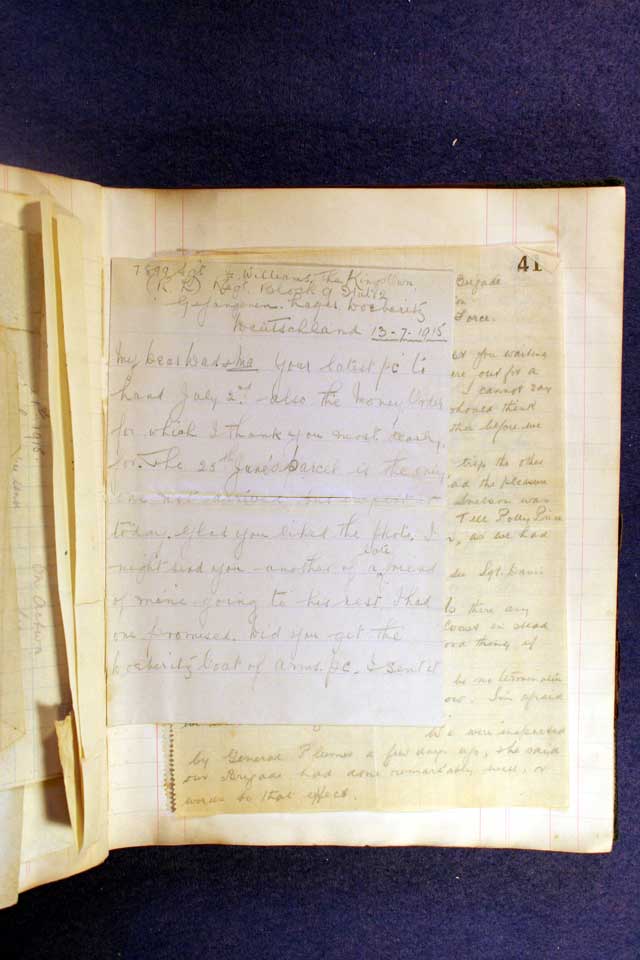 41
7899 Sgt J. Williams, The Kings Own
(R L) Regt. Block 9
Gefangenen Lager Doeberitz
Deutschland 13-7-1915
My Dear Dad & Ma Your latest pc to
hand July 2nd - also the Money Order
for which I thank you most dearly
for. The 25th June's parcel is the only
one not arrived, but expect it
today. Glad you liked the photo. I
might send you another of a late friend
of mine going to his rest, I had
one promised. Did you get the
Doeberitz Coat of Arms pc. I sent it
Brigade
on
Force.
you waiting
ere out for a
I cannot say
should think
before we
trip the other
ad the pleasure
Snelson was
Tell Polly Price
as we had
Sgt. Davis
there any
be no termination
ow. I'm afraid
We were inspected
by General Plumer a few days ago, & he said
our Brigade had done remarkably well, or
words to that effect.
1915
On active